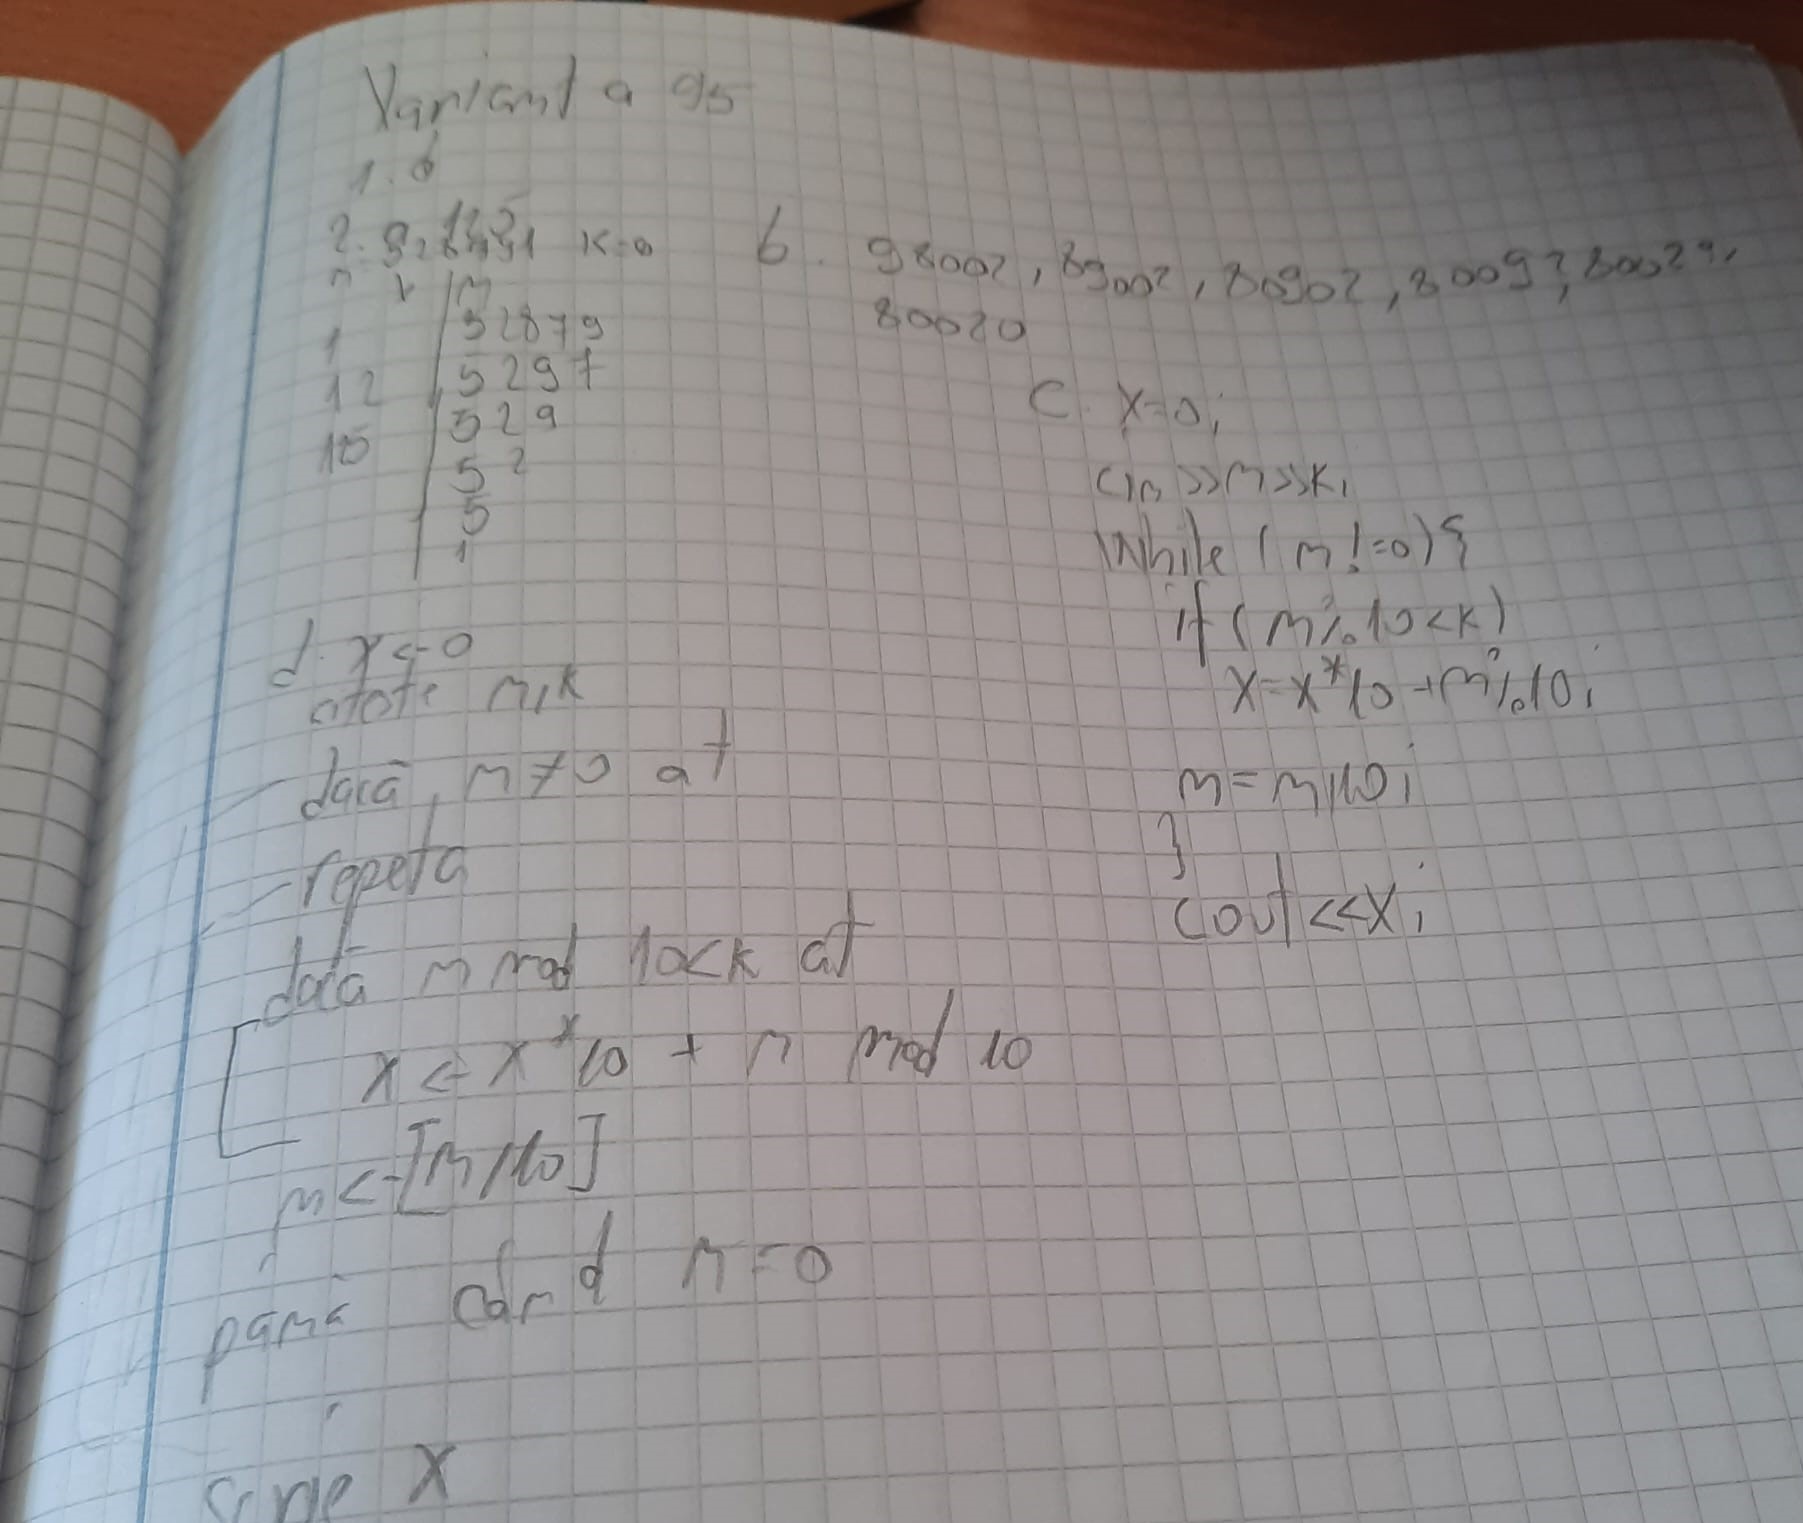 Varianta 95
1. d
2. a, K=0
n x | m
1 | 52879
12 | 5297
15 | 529
52
5
1
b. 98002, 89002, 80902, 80092, 80029,
80020
c. x=0;
cin>>n>>k;
While (n!=0){
if (n%10<k)
x=x*10+n%10;
n=n/10;
}
cout<<x;
d. x<-0
citote n,k
dacă, n≠0 at
repeta
dacă n mod 10<k at
x<-x*10 + n mod 10
n<-[n/10]
pană când n=0
scrie x